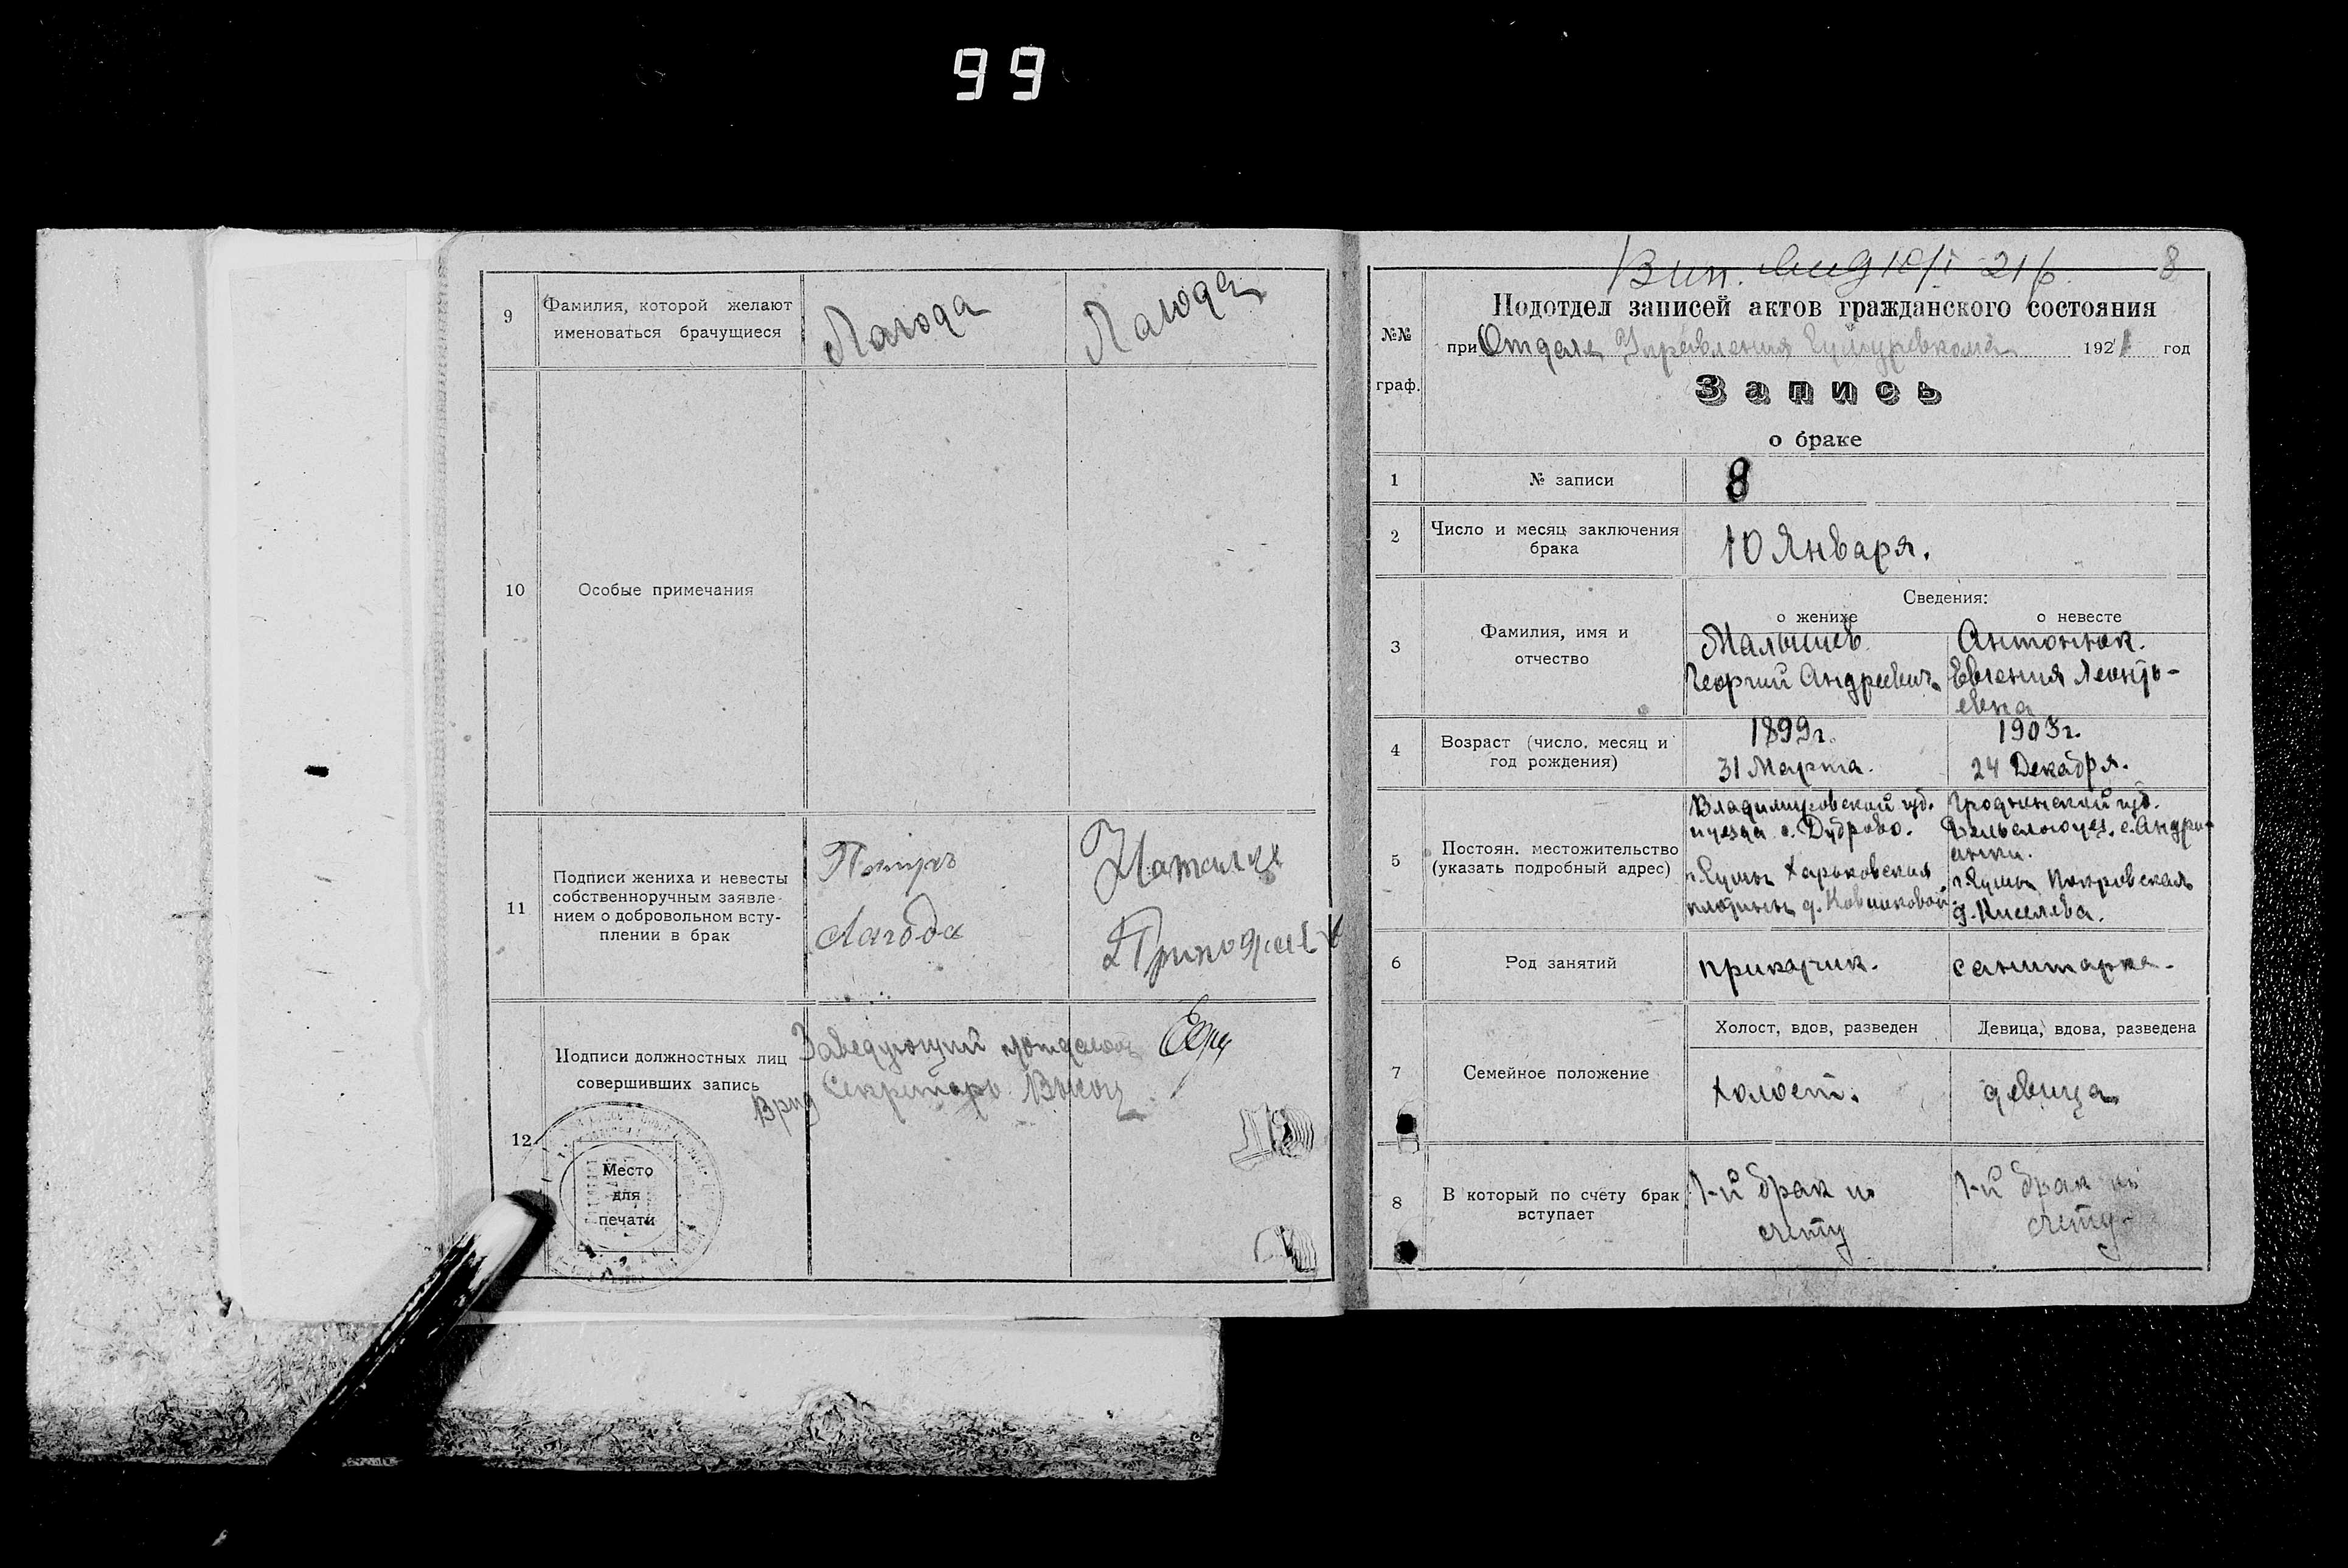 99
9
Фамилия, которой желают
именоваться брачущиеся
Лагода
Лагода
10
Особые примечания
11
Подписи жениха и невесты
собственноручным заявле-
нием о добровольном всту-
плении в брак
Петръ
Лагода
Наталия
12
Подписи должностных лиц
совершивших запись
Заведующий
Врид Секретарь
Место
для
печати
8
№№
граф.
Подотдел записей актов гражданского состояния
при Отделе Управления 1921 год
Запись
о браке
1
№ записи
8
2
Число и месяц заключения
брака
10 Января.
3
Фамилия, имя и
отчество
Сведения:
о женихе
о невесте
Малышев
Георгий Андреевич
Антонюк.
Евгения Леонть-
евна
4
Возраст (число, месяц и
год рождения)
1899г.
31 Марта.
1903г.
24 Декабря.
5
Постоян. местожительство
(указать подробный адрес)
Владимировской губ.
с. Дуброво.
г. Сумы Харьковская
Гродненской губ.
Бельского уез. с. Андри-
анки.
г. Сумы Покровская
д. Киселева.
6
Род занятий
приказчик.
санитарка.
7
Семейное положение
Холост, вдов, разведен
Девица, вдова, разведена
холост.
девица
8
В который по счету брак
вступает
1-й брак по
счету
1-й брак по
счету